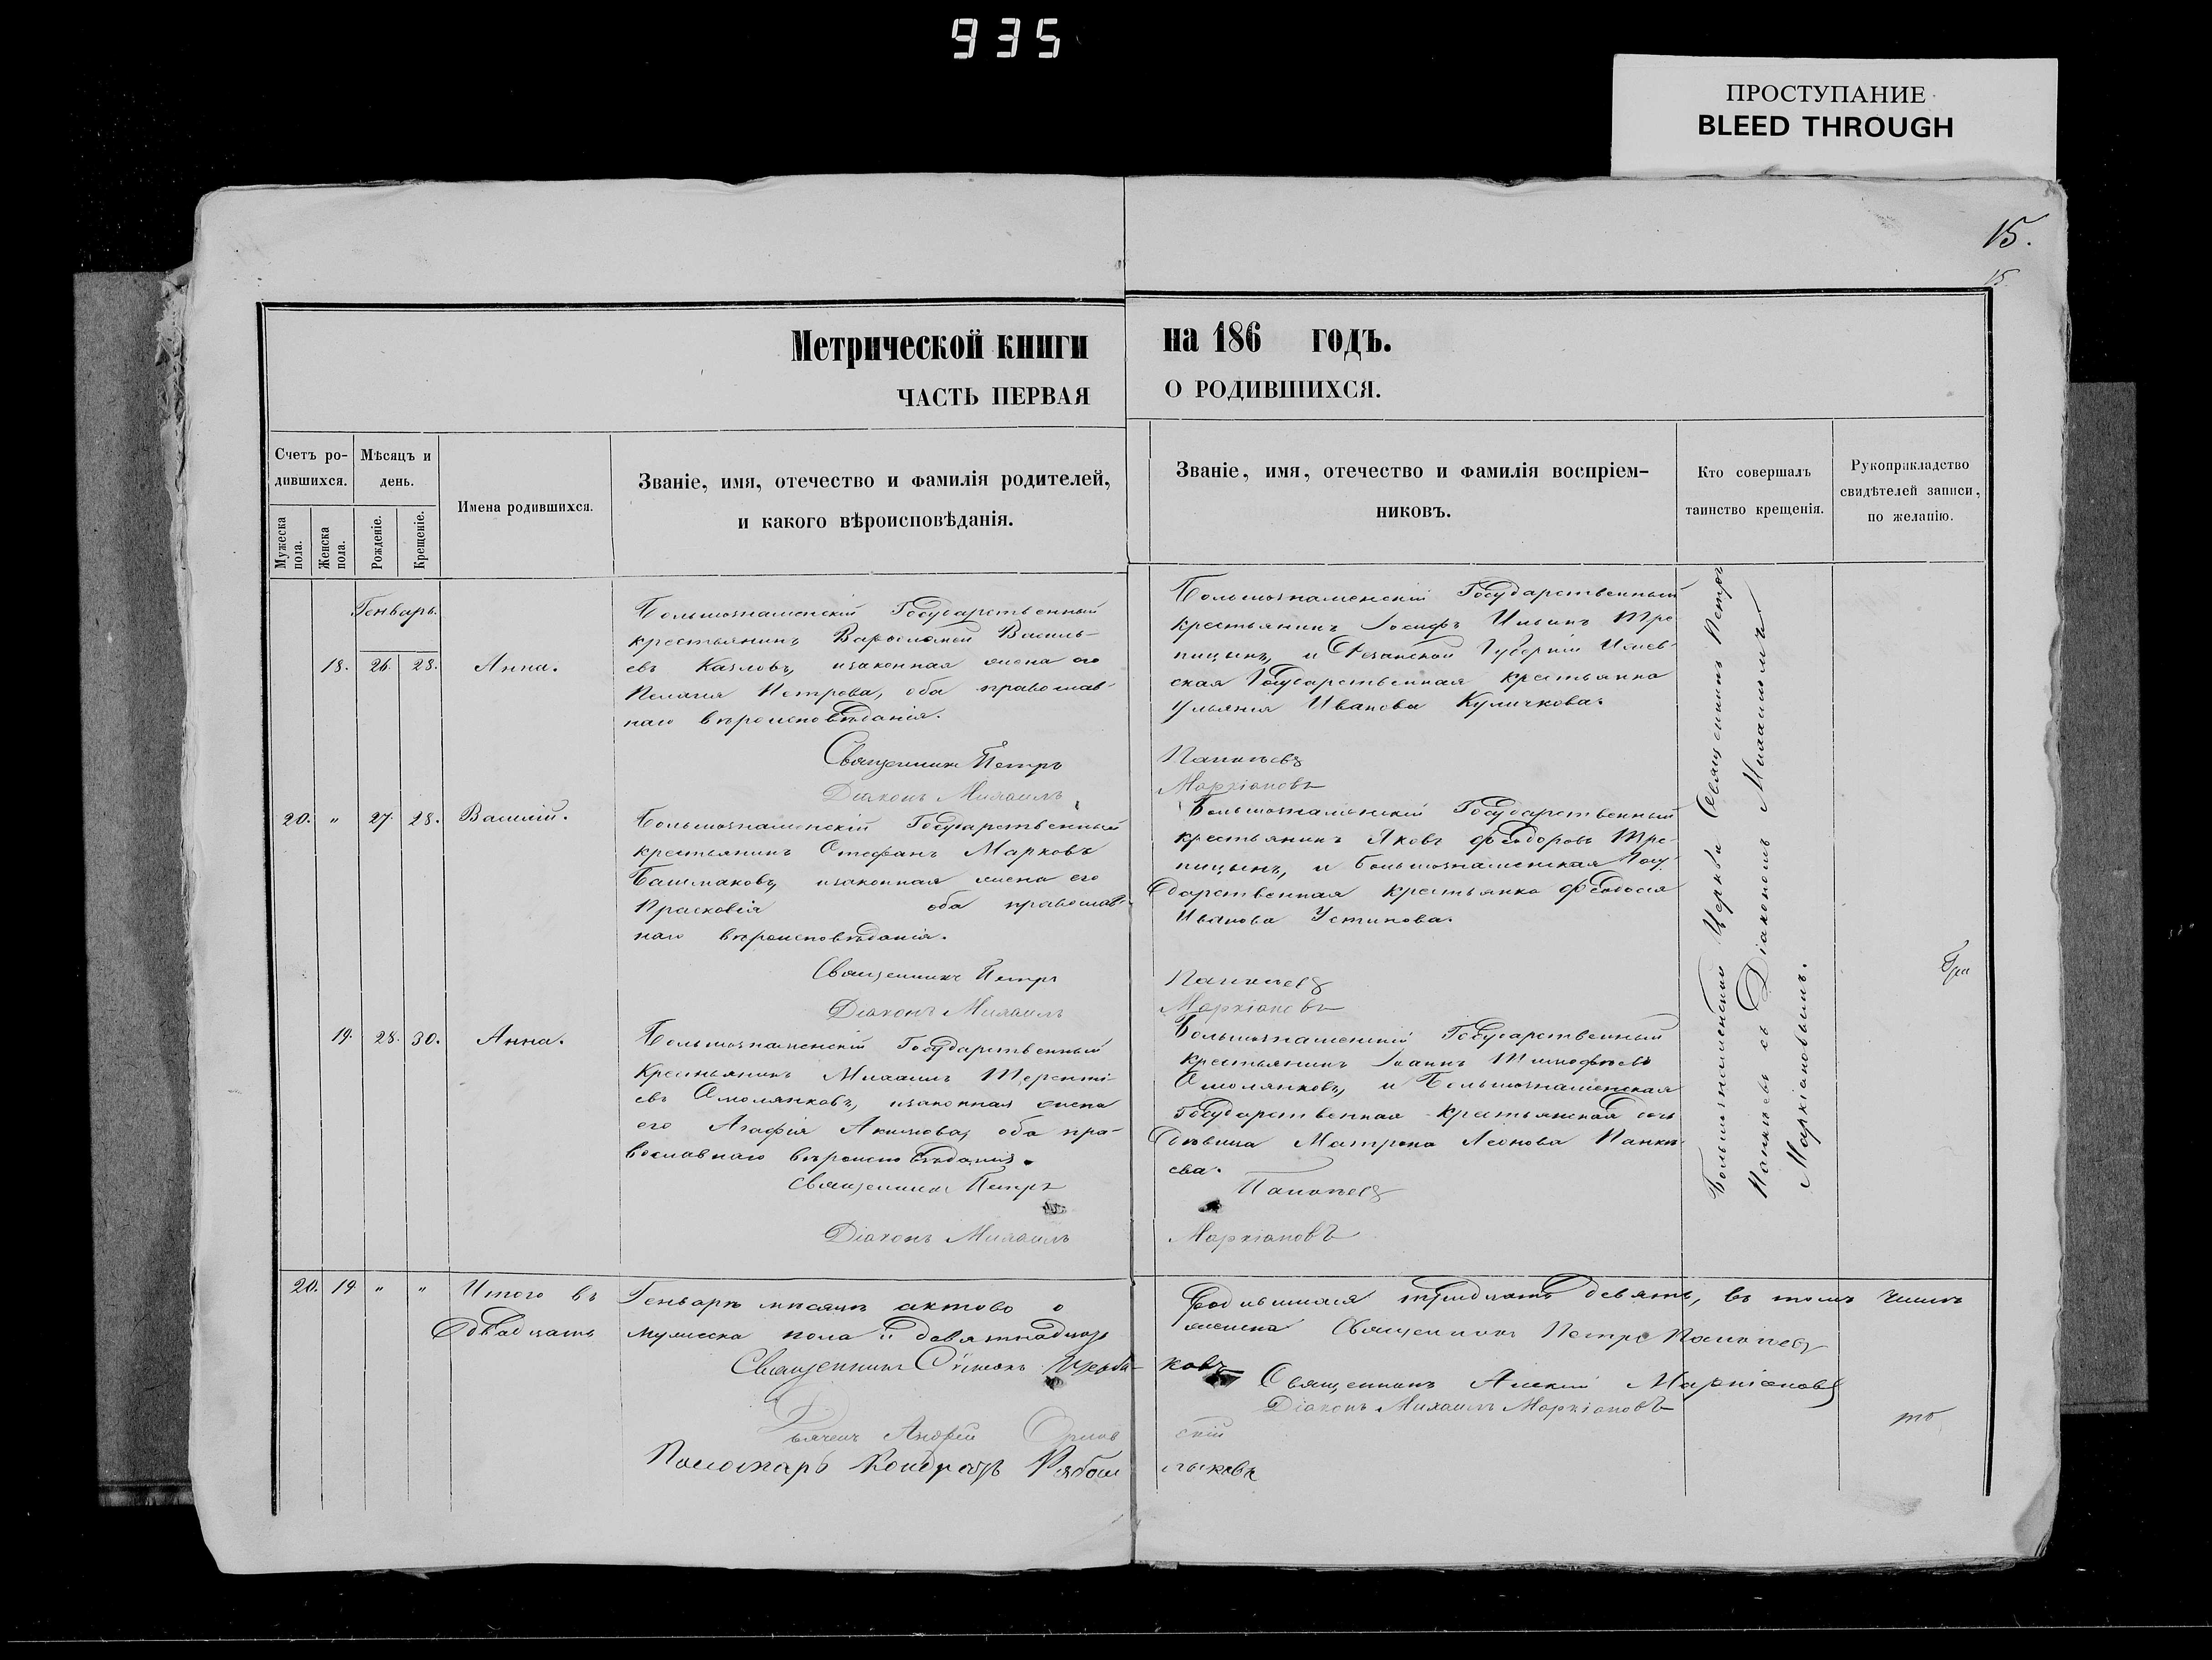 935
ПРОСТУПАНИЕ
BLEED THROUGH
15.
15
Метрической книги на 186 годъ.
ЧАСТЬ ПЕРВАЯ О РОДИВШИХСЯ.
Счетъ родившихся.
Мужеска пола.
Женска пола.
Мѣсяцъ и день.
Рожденіе.
Крещеніе.
Имена родившихся.
Званіе, имя, отечество и фамилія родителей,
и какого вѣроисповѣданія.
Званіе, имя, отечество и фамилія воспріем-
никовъ.
Кто совершалъ
таинство крещенія.
Рукоприкладство
свидѣтелей записи,
по желанію.
Генварь.
18. 26. 28. Анна.
Большознаменскій Государственный
крестьянинъ Варѳоломей Василь-
евъ Казловъ, изаконная жена его
Пелагія Петрова, оба православ-
наго вѣроисповѣданія.
Священникъ Петръ
Діаконъ Михаилъ
Большознаменскій Государственный
крестьянинъ Іосифъ Ильинъ Тре-
пицынъ, и Губерніи
ская Государственная крестьянка
Ульянія Иванова Куличкова.
Папопьевъ
Маркіановъ
20. " 27. 28. Василій.
Большознаменскій Государственный
крестьянинъ Стефанъ Марковъ
Башмаковъ, изаконная жена его
Прасковія оба православ-
наго вѣроисповѣданія.
Священникъ Петръ
Діаконъ Михаилъ
Большознаменскій Государственный
крестьянинъ Яковъ Феодоровъ Тре-
пицынъ, и Большознаменская Госу-
дарственная крестьянка Феодосія
Иванова Устинова.
Маркіановъ
19. 28. 30. Анна.
Большознаменскій Государственный
крестьянинъ Михаилъ Теренті-
евъ Смолянковъ, изаконная жена
его Агафія Акимова, оба пра-
вославнаго вѣроисповѣданія.
Священникъ Петръ
Діаконъ Михаилъ
Большознаменскій Государственный
крестьянинъ Іоаннъ Тимофѣевъ
Смолянковъ, и Большознаменская
Государственная крестьянская дочь
дѣвица Матрона Леонова Панкѣ-
ева.
Маркіановъ
Большознаменской Церкви Священникъ Петръ
съ Діакономъ Михаиломъ
Маркіановымъ.
20. 19. " " Итого въ Генварѣ мѣсяцѣ актово о родившихся тридцать девять, въ томъ числѣ
двадцать мужеска пола и девятнадцать женска Священникъ Петръ
Священникъ Симеонъ Щерба-
ковъ
Священникъ Алексій Маркіановъ
Діаконъ Михаилъ Маркіановъ
Дьячекъ Андрей Орловскій
Пономарь Кондратъ